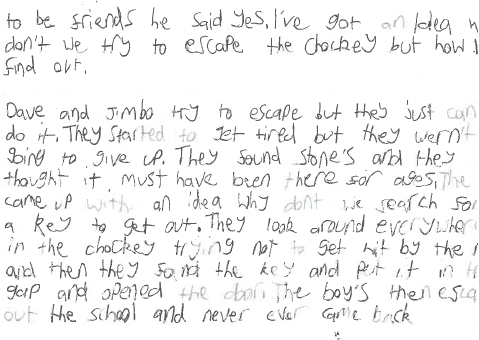 to be friends he said yes. I've got an Idea
don't we try to escape the chockey but how I
find out.
Dave and Jimbo try to escape but they just can
do it. They started to get tired but they wern't
going to give up. They found stone's and they
thought it must have been there for ages. The
came up with an idea why dont we search for
a key to get out. They look around everywher
in the chockey trying not to get hit by the
and then they found the key and put it in
gap and opened the door. The boy's then esca
out the school and never ever came back